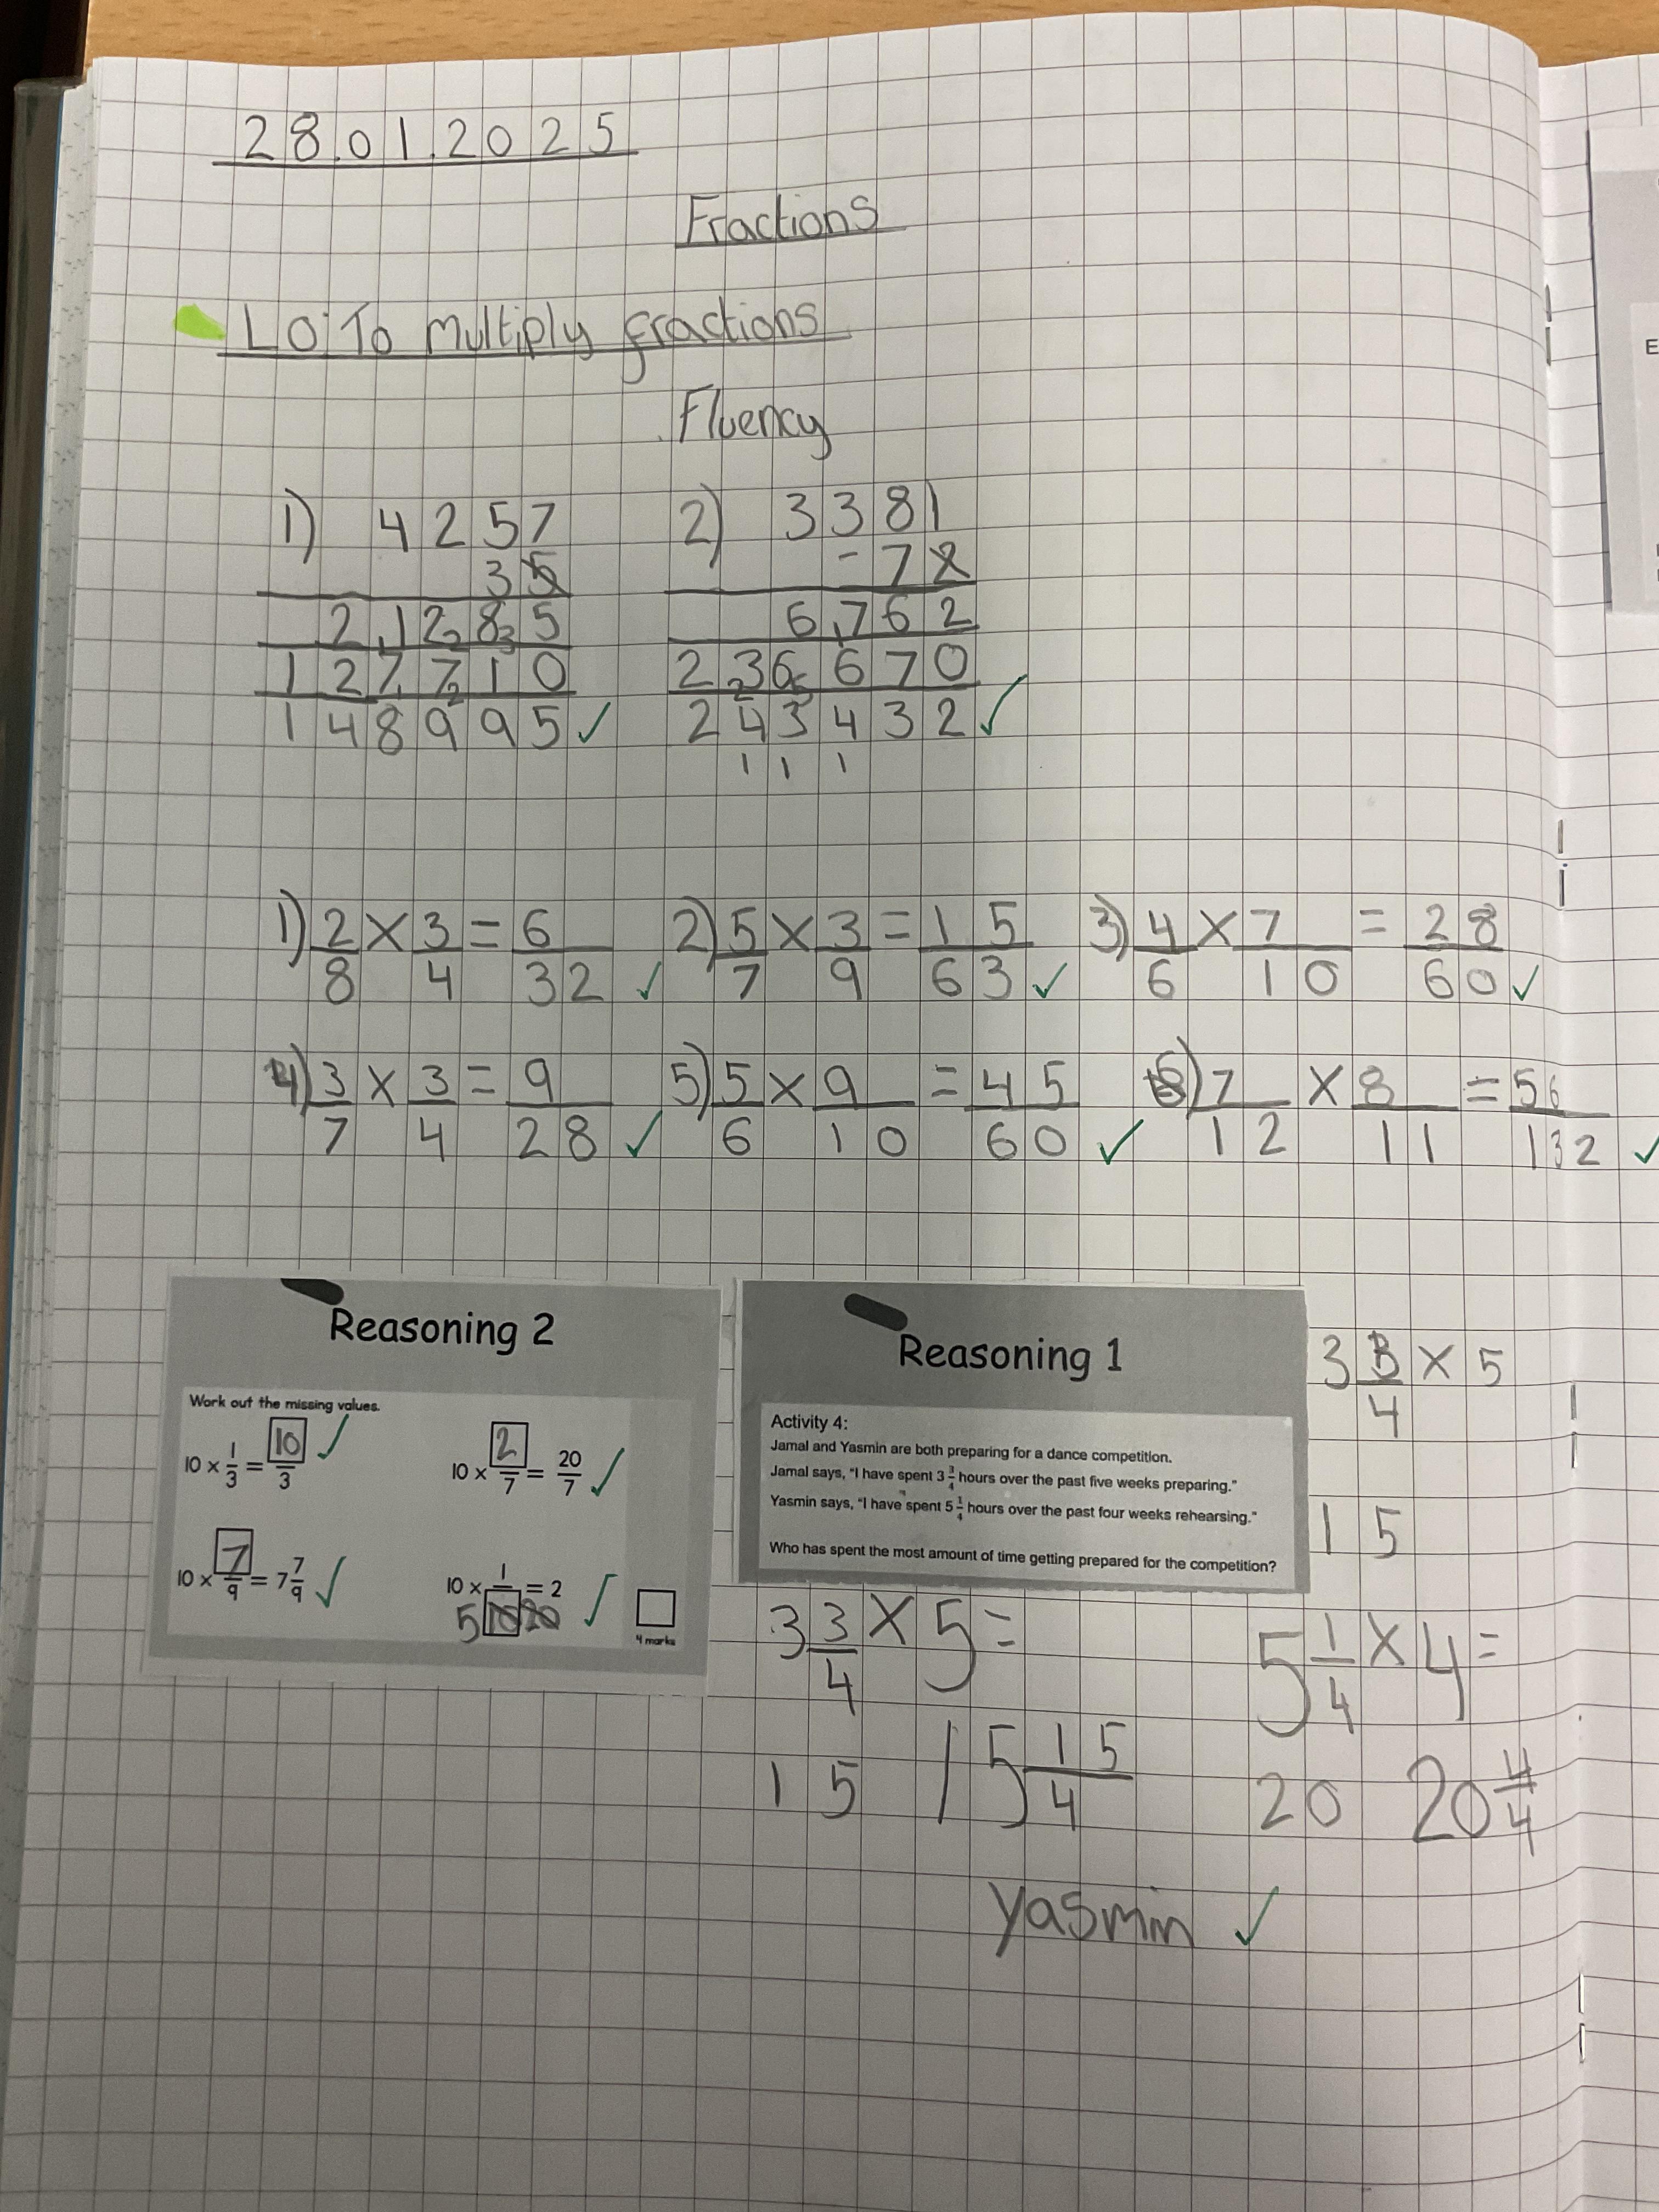 28.01.2025
Fractions
LO: To multiply fractions
Fluency
1) 4257
35
21285
127710
148995 ✓
2) 3381
-72
6762
236670
243432 ✓
111
1) 2/8 × 3/4 = 6/32 ✓ 2) 5/7 × 3/9 = 15/63 ✓ 3) 4/6 × 7/10 = 28/60 ✓
4) 3/7 × 3/4 = 9/28 ✓ 5) 5/6 × 9/10 = 45/60 ✓ 6) 7/12 × 8/11 = 56/132 ✓
Reasoning 2
Work out the missing values.
10 × 1/3 = 10/3 ✓ 10 × 2/7 = 20/7 ✓
10 × 7/9 = 7 7/9 ✓ 10 × 1/5 = 2 ✓
4 marks
Reasoning 1
Activity 4:
Jamal and Yasmin are both preparing for a dance competition.
Jamal says, "I have spent 3 3/4 hours over the past five weeks preparing."
Yasmin says, "I have spent 5 1/4 hours over the past four weeks rehearsing."
Who has spent the most amount of time getting prepared for the competition?
3 3/4 × 5
15
3 3/4 × 5 = 5 1/4 × 4 =
15 15 15/4 20 20 4/4
Yasmin ✓
E